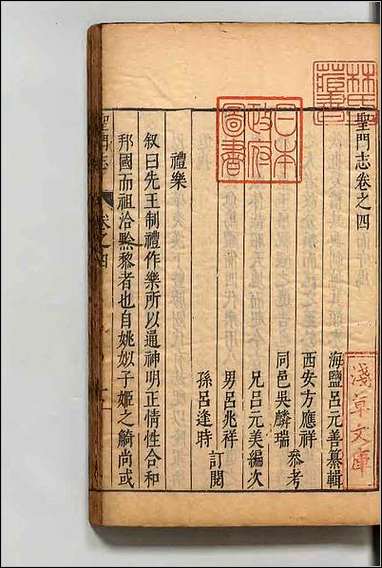 聖門志卷之四
海鹽呂元善纂輯
西安方應祥
同邑吳麟瑞
參考
兄呂元美編次
男呂兆祥
孫呂逢時
訂閱
禮樂
叙曰先王制禮作樂所以通神明正情性合和
邦國而祖洽黔黎者也自姚姒子姬之籥尚或
聖門志
卷之四
日本
政府
圖書
淺草文庫